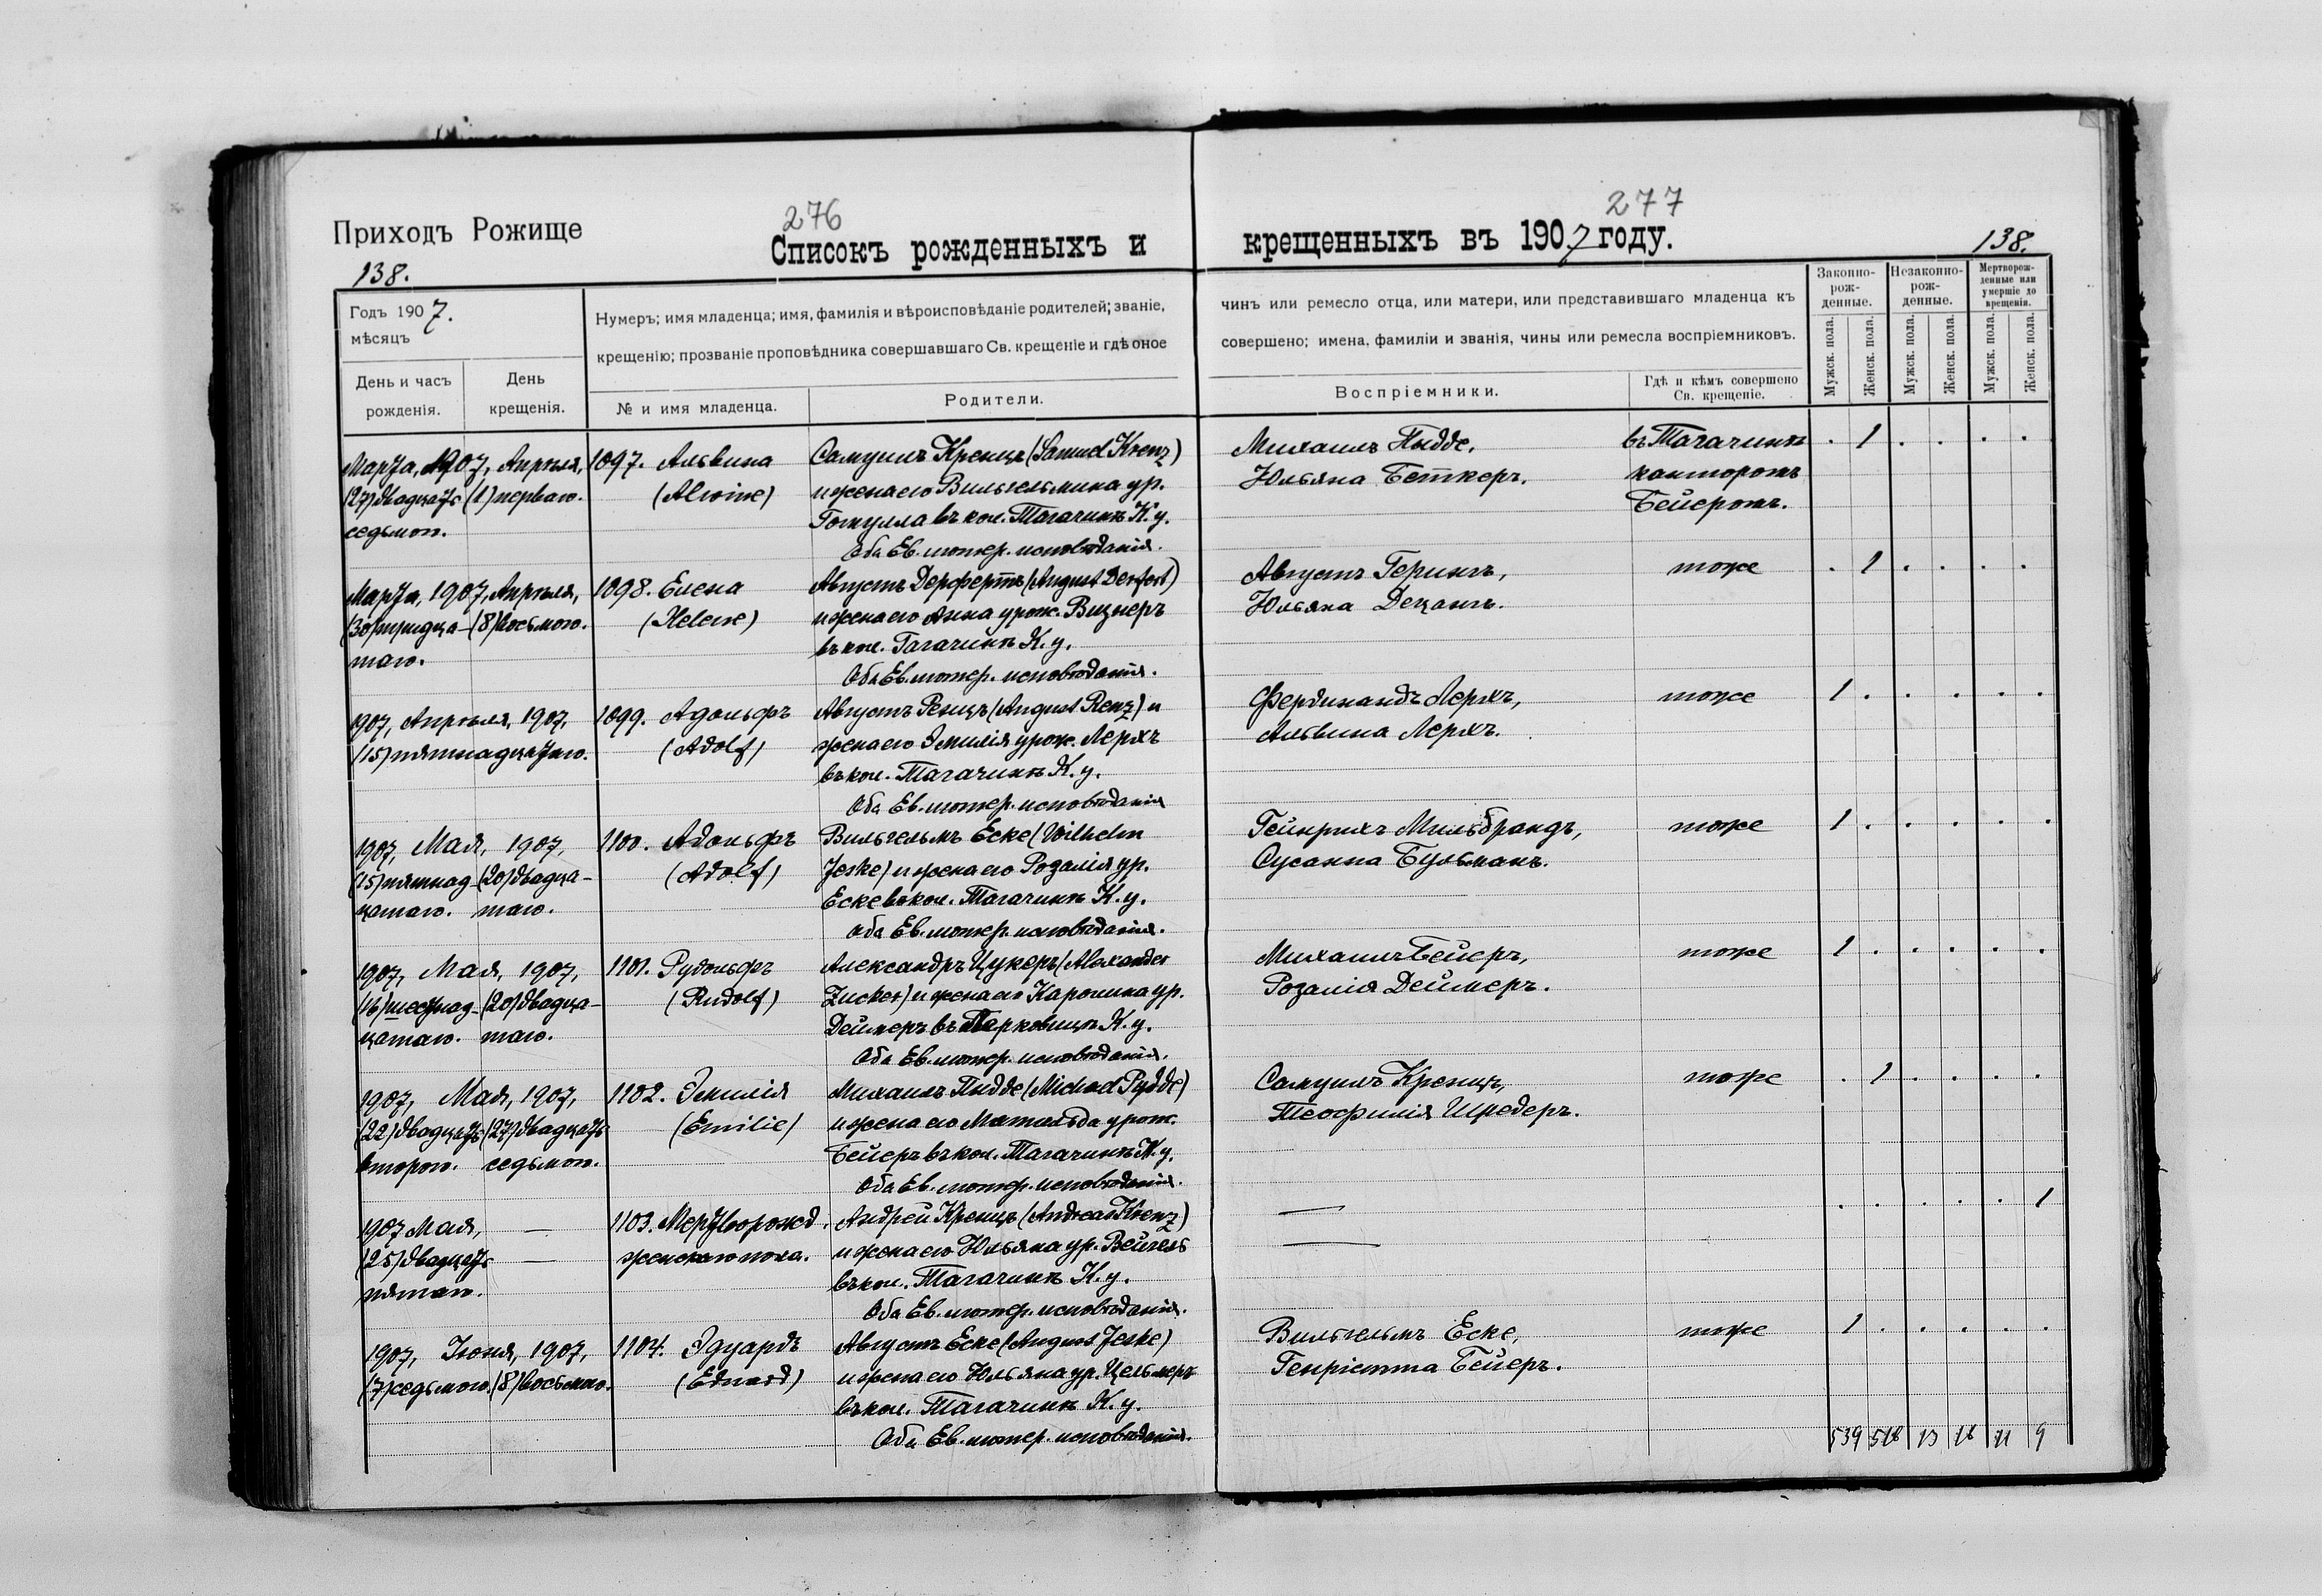 276
277
Приходъ Рожище
Списокъ рожденныхъ и
крещенныхъ въ 1907 году.
138.
138.
Годъ 1907.
мѣсяцъ
День и часъ
рожденія.
День
крещенія.
Нумеръ; имя младенца; имя, фамилія и вѣроисповѣданіе родителей; званіе,
крещенію; прозваніе проповѣдника совершавшаго Св. крещеніе и гдѣ оное
№ и имя младенца.
Родители.
чинъ или ремесло отца, или матери, или представившаго младенца къ
совершено; имена, фамиліи и званія, чины или ремесла воспріемниковъ.
Воспріемники.
Гдѣ и кѣмъ совершено
Св. крещеніе.
Законно-
рож-
денные.
Незаконно-
рож-
денные.
Мертворож-
денные или
умершіе до
крещенія.
Мужск. пола.
Женск. пола.
Мужск. пола.
Женск. пола.
Мужск. пола.
Женск. пола.
Марта, 1907, Апрѣля,
(27) двадцать (1) перваго.
седьмого.
1097. Альвина
(Alwine)
Самуилъ Кренцъ (Samuel Krenz)
и жена его Вильгельмина ур.
въ кол. Тагачинѣ К. у.
Оба Ев. лютер. исповѣданія.
Михаилъ Пыдде,
Юльяна Беткеръ.
въ Тагачинѣ
канторомъ
Бейеромъ.
. 1 . . . .
Марта, 1907, Апрѣля,
(30) тридца- (8) восьмого.
таго.
1098. Елена
(Helene)
Августъ Дерфертъ (August Derfert)
и жена его Анна урож. Вицнеръ
въ кол. Тагачинѣ К. у.
Оба Ев. лютер. исповѣданія.
Августъ Герингъ,
Юльяна Децангъ.
тоже
. 1 . . . .
1907, Апрѣля, 1907,
(15) пятнадцатаго.
1099. Адольфъ
(Adolf)
Августъ Ренцъ (August Renz) и
жена его Эмилія урож. Лерхъ
въ кол. Тагачинѣ К. у.
Оба Ев. лютер. исповѣданія
Фердинандъ Лерхъ,
Альвина Лерхъ.
тоже
1 . . . . .
1907, Мая, 1907,
(15) пятнад- (20) двадца-
цатаго. таго.
1100. Адольфъ
(Adolf)
Вильгельмъ Еске (Wilhelm
Jeske) и жена его Розалія ур.
Еске въ кол. Тагачинѣ К. у.
Оба Ев. лютер. исповѣданія.
Гейнрихъ Мильбрандъ,
Сусанна Бульманъ.
тоже
1 . . . . .
1907, Мая, 1907,
(16) шестнад- (20) двадца-
цатаго. таго.
1101. Рудольфъ
(Rudolf)
Александръ Цукеръ (Alexander
Zucker) и жена его Каролина ур.
Деймеръ въ К. у.
Оба Ев. лютер. исповѣданія.
Михаилъ Бейеръ,
Розалія Деймеръ.
тоже
1 . . . . .
1907, Мая, 1907,
(22) двадцать (27) двадцать
второго. седьмого.
1102. Эмилія
(Emilie)
Михаилъ Пыдде (Michael Pydde)
и жена его Матильда урож.
Бейеръ въ кол. Тагачинѣ К. у.
Оба Ев. лютер. исповѣданія.
Самуилъ Кренцъ,
Теофилія Шредеръ.
тоже
. 1 . . . .
1907 Мая, —
(25) двадцать —
пятаго.
1103. Мертворожд.
женскаго пола.
Андрей Кренцъ (Andreas Krenz)
и жена его Юльяна ур. Вейгель
въ кол. Тагачинѣ К. у.
Оба Ев. лютер. исповѣданія.
—
—
. . . . . 1
1907, Іюня, 1907,
(7) седьмого. (8) восьмого.
1104. Эдуардъ
(Eduard)
Августъ Еске (August Jeske)
и жена его Юльяна ур. Цельмеръ
въ кол. Тагачинѣ К. у.
Оба Ев. лютер. исповѣданія.
Вильгельмъ Еске,
Генріетта Бейеръ.
тоже
1 . . . . .
539 518 13 16 11 9